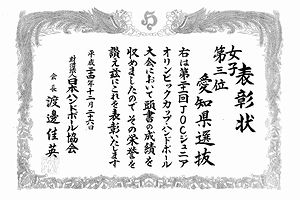 表彰状
女子
第三位
愛知県選抜
右は第二十一回JOCジュニア
オリンピックカップハンドボール
大会において頭書の成績を
収めましたので その栄誉を
讃え茲にこれを表彰いたします
平成二十四年十二月二十六日
財団法人日本ハンドボール協会
会長 渡邊佳英